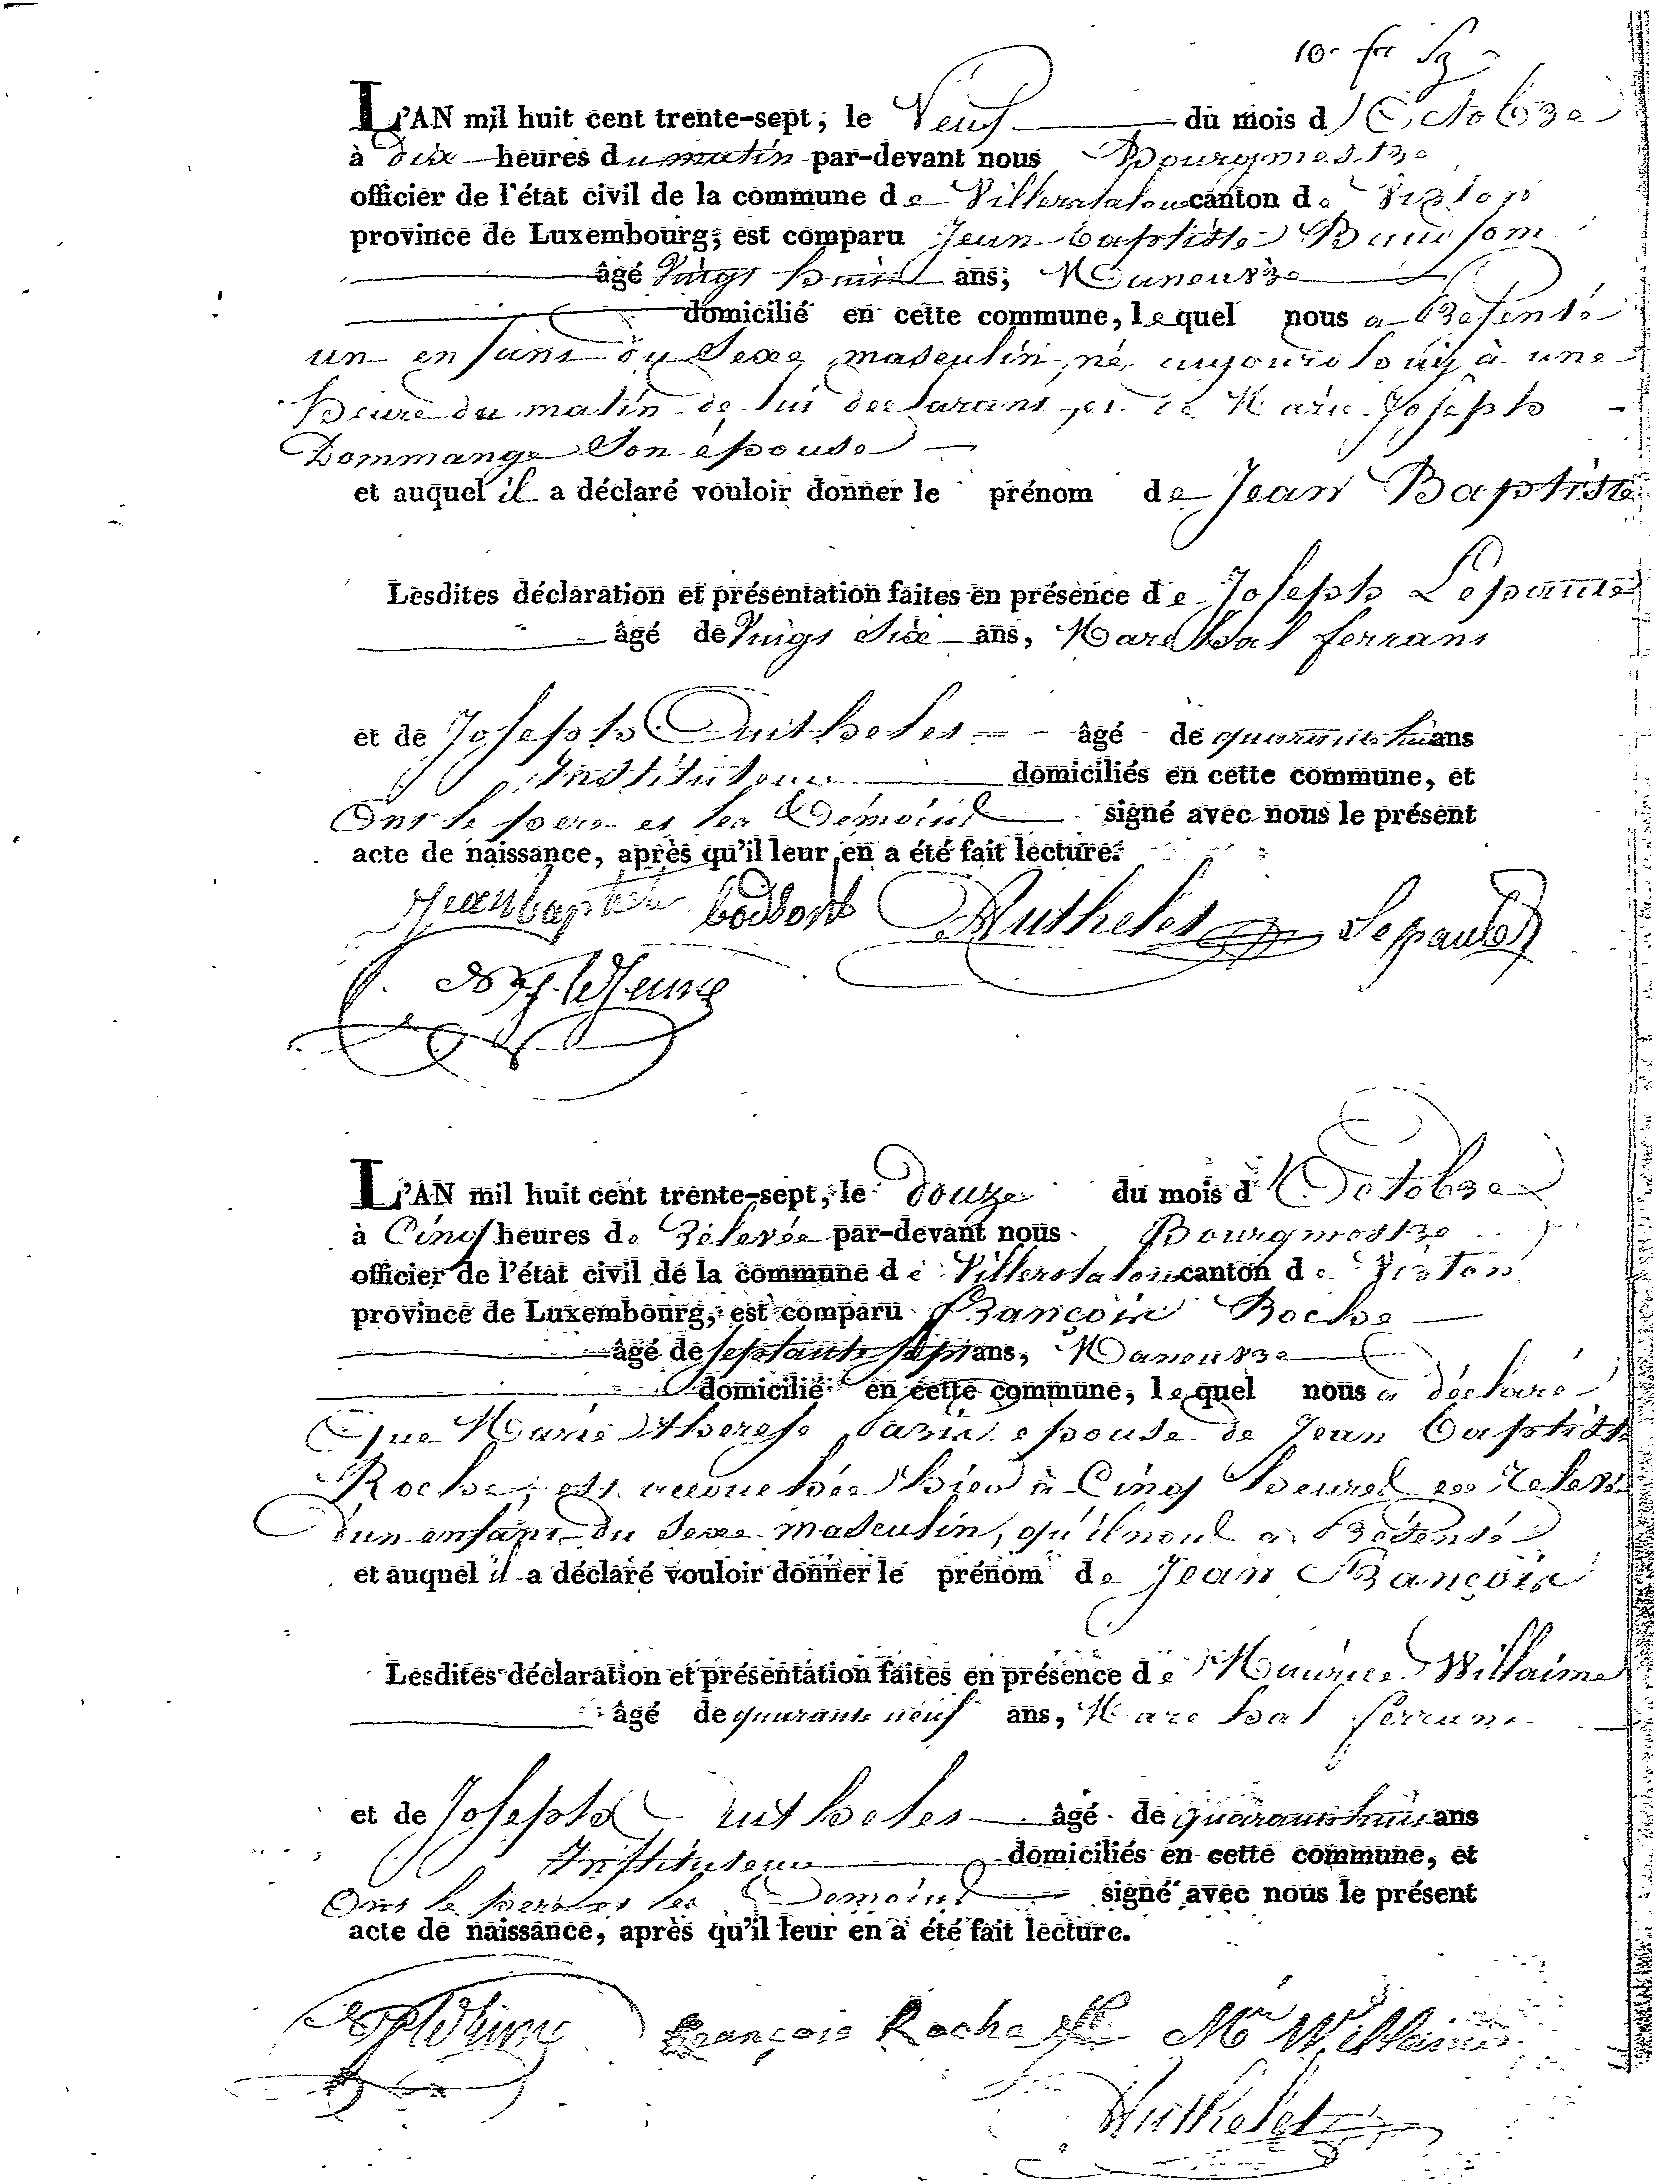 L'AN mil huit cent trente-sept, le Neuf du mois d'Octobre
à dix heures du matin par-devant nous Bourgmestre
officier de l'état civil de la commune de Villerslaloue canton de Virton
province de Luxembourg, est comparu Jean baptiste
âgé Vingt huit ans, Manouvre
domicilié en cette commune, lequel nous a Présenté
un enfant du Sexe masculin, né aujourdhuy à une
heure du matin de lui declarant, et de Marie Joseph
Dommange Son épouse
et auquel il a déclaré vouloir donner le prénom de Jean Baptiste
Lesdites déclaration et présentation faites en présence de Joseph
âgé de Vingt Six ans, Marechal ferrant
et de Joseph Authelet âgé de quarante huit ans
Instituteur domiciliés en cette commune, et
Ont le pere et les Témoins signé avec nous le présent
acte de naissance, après qu'il leur en a été fait lecture.
Jean baptiste Authelet Lepaule
L'AN mil huit cent trente-sept, le douze du mois d'Octobre
à Cinq heures de Rélevée par-devant nous Bourgmestre
officier de l'état civil de la commune de Villerslaloue canton de Virton
province de Luxembourg, est comparu François Roche
âgé de septante sept ans, Manouvre
domicilié en cette commune, lequel nous a déclaré
Que Marie Therese épouse de Jean baptiste
Roche, est accouchée hier à Cinq heures de Relevée
d'un enfant du Sexe masculin, qu'il nous a Présenté
et auquel il a déclaré vouloir donner le prénom de Jean François
Lesdites déclaration et présentation faites en présence de Maurice Willaime
âgé de quarante neuf ans, Marechal ferrant
et de Joseph Authelet âgé de quarante huit ans
Instituteur domiciliés en cette commune, et
Ont le et les Témoins signé avec nous le présent
acte de naissance, après qu'il leur en a été fait lecture.
François Roche Mce Willaime
Authelet